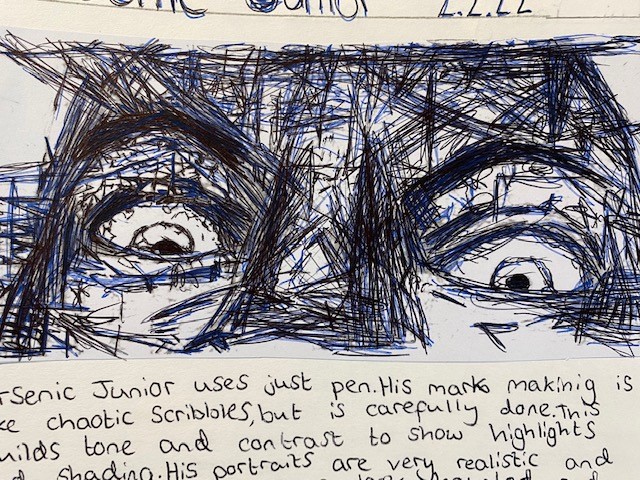 Junior 2.2.22
rsenic Junior uses just pen.His mark makinig is
ke chaotic Scribbles,but is carefully done.This
uilds tone and contrast to show highlights
d shading.His portraits are very realistic and